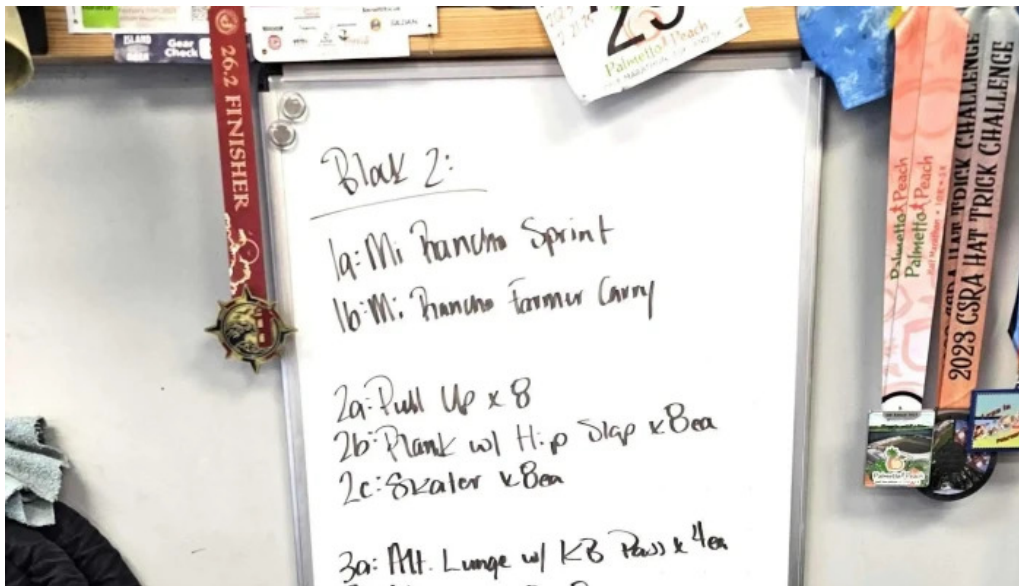 ISLAND
Gear
Check
26.2 FINISHER
Palmetto Peach
Block 2:
1a: Mi Rancho Sprint
1b: Mi Rancho Farmer Carry
2a: Pull Up x 8
2b: Plank w/ Hip Slap x 8ea
2c: Skater x 8ea
3a: Alt. Lunge w/ KB Pass x 4ea
Palmetto Peach
Palmetto Peach
Half Marathon
CSRA HAT TRICK CHALLENGE
2023 CSRA HAT TRICK CHALLENGE
Palmetto Peach